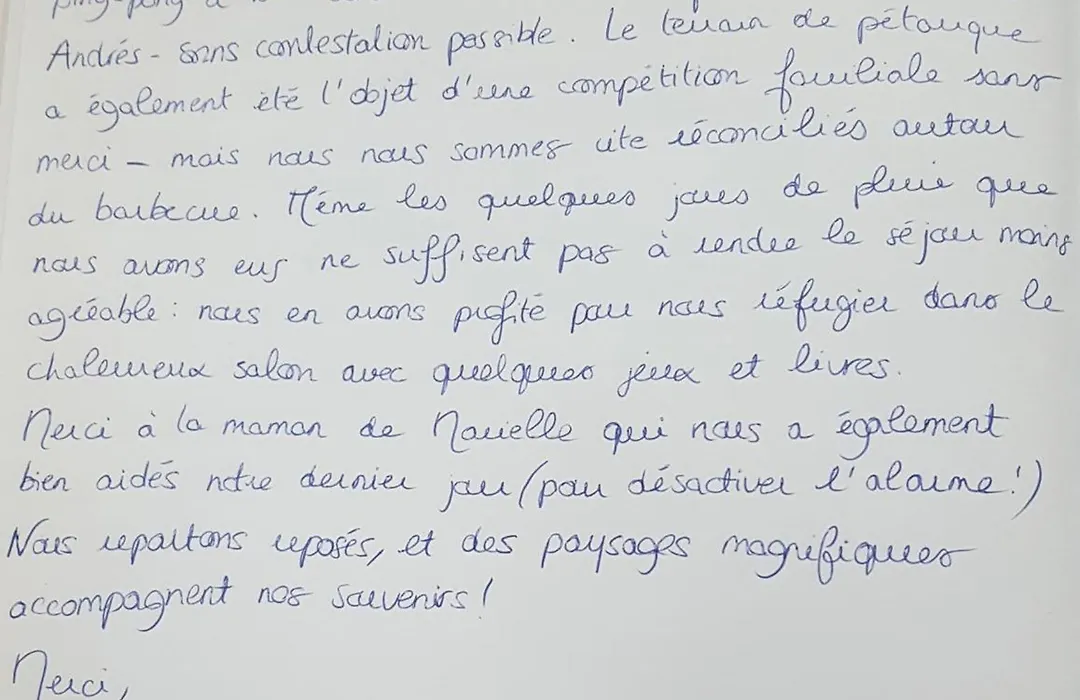 ping-pong a
Andrés - sans contestation possible. Le terrain de pétanque
a également été l'objet d'une compétition familiale sans
merci - mais nous nous sommes vite réconciliés autour
du barbecue. Même les quelques jours de pluie que
nous avons eus ne suffisent pas à rendre le séjour moins
agréable : nous en avons profité pour nous réfugier dans le
chaleureux salon avec quelques jeux et livres.
Merci à la maman de Marielle qui nous a également
bien aidés notre dernier jour (pour désactiver l'alarme !)
Nous repartons reposés, et des paysages magnifiques
accompagnent nos souvenirs !
Merci,